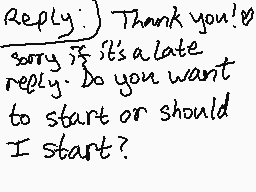 Reply: Thank you!♡
sorry if it's a late
reply. Do you want
to start or should
I start?